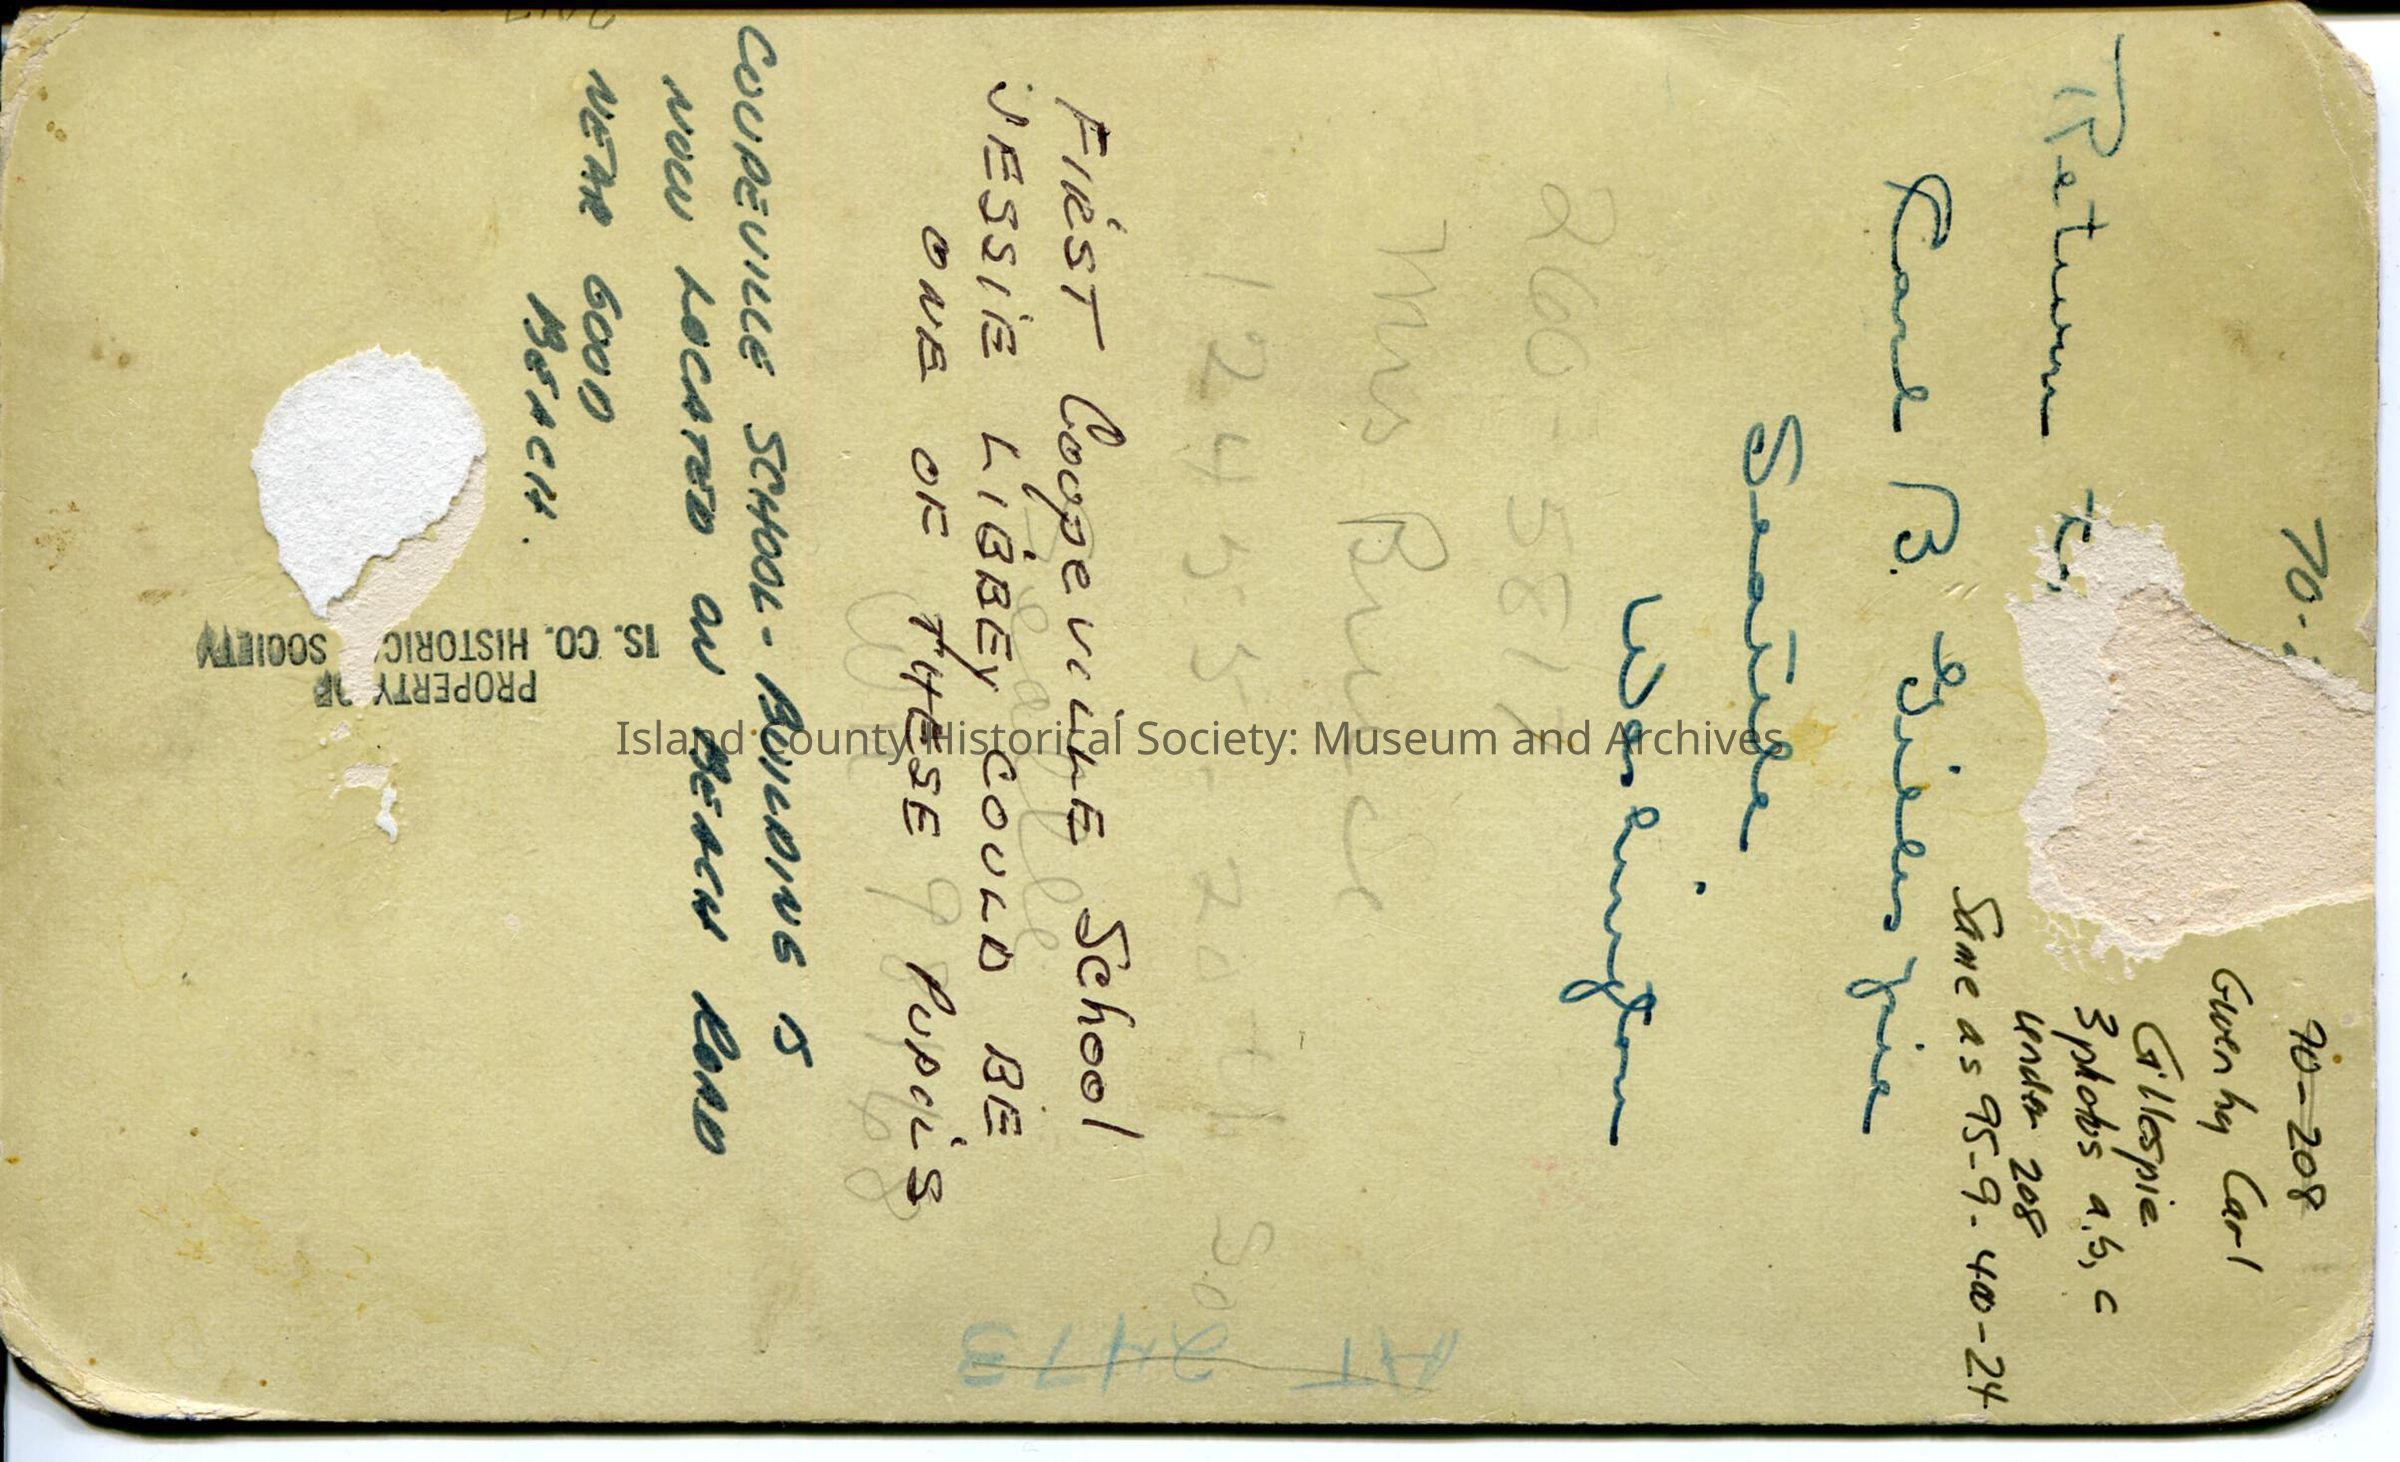 70-
70-208
Given by Carl
Gillespie
3 photos a, b, c
under 208
Same as 95-9-400-24
Return to
Carl B. Gillespie
Seattle
Washington
260-5817
Mrs Bruce
1245 S. 20th So.
Seattle
Wn 98168
First Coupeville School
JESSIE LIBBEY COULD BE
ONE OF THESE PUPILS
COUPEVILLE SCHOOL - BUILDING IS
NOW LOCATED ON BEACH ROAD
NEAR GOOD
BEACH.
PROPERTY OF
IS. CO. HISTORIC SOCIETY
HT 2473
Island County Historical Society: Museum and Archives